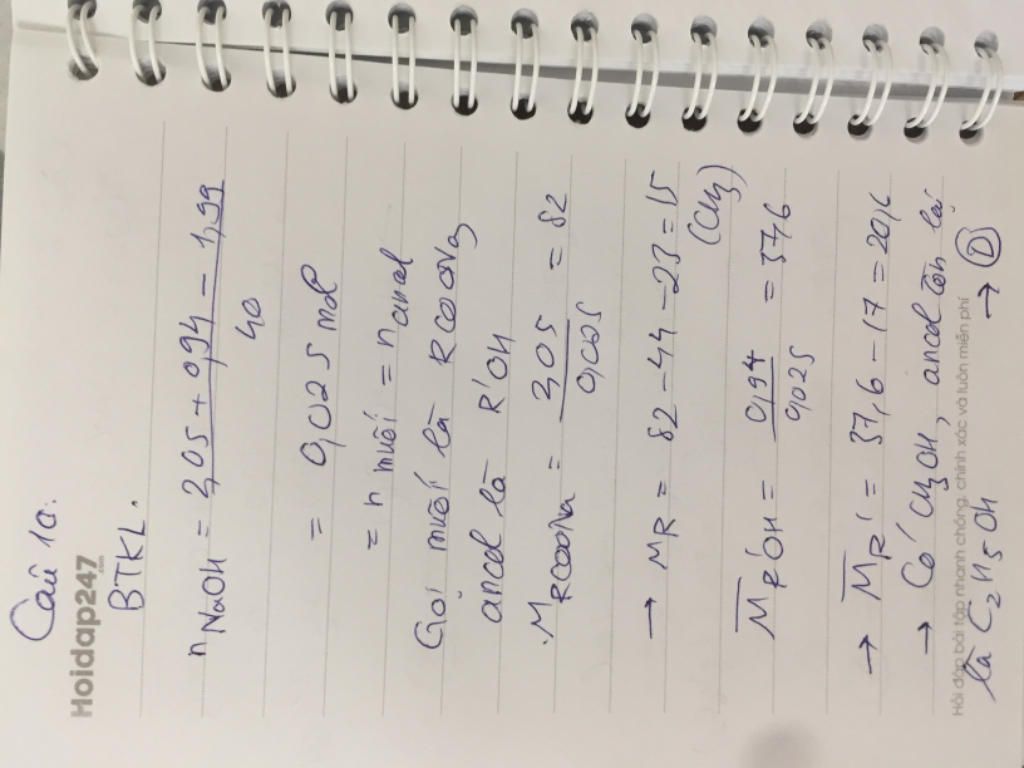 Câu 10:
Hoidap247
.com
BTKL.
n NaOH = 2,05 + 0,94 - 1,99 / 40
= 0,025 mol
= n muối = n ancol
Gọi muối là RCOONa
ancol là R'OH
M RCOONa = 2,05 / 0,025 = 82
→ M R = 82 - 44 - 23 = 15
(CH3)
M R'OH = 0,94 / 0,025 = 37,6
→ M R' = 37,6 - 17 = 20,6
→ Có CH3OH, ancol còn lại
Hỏi đáp bài tập nhanh chóng, chính xác và luôn miễn phí
là C2H5OH → D